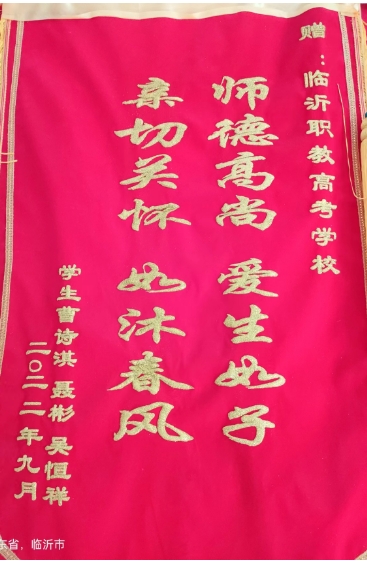 赠：临沂职教高考学校
师德高尚 爱生如子
亲切关怀 如沐春风
学生曹诗淇 聂彬 吴恒祥
二〇二二年九月
东省，临沂市